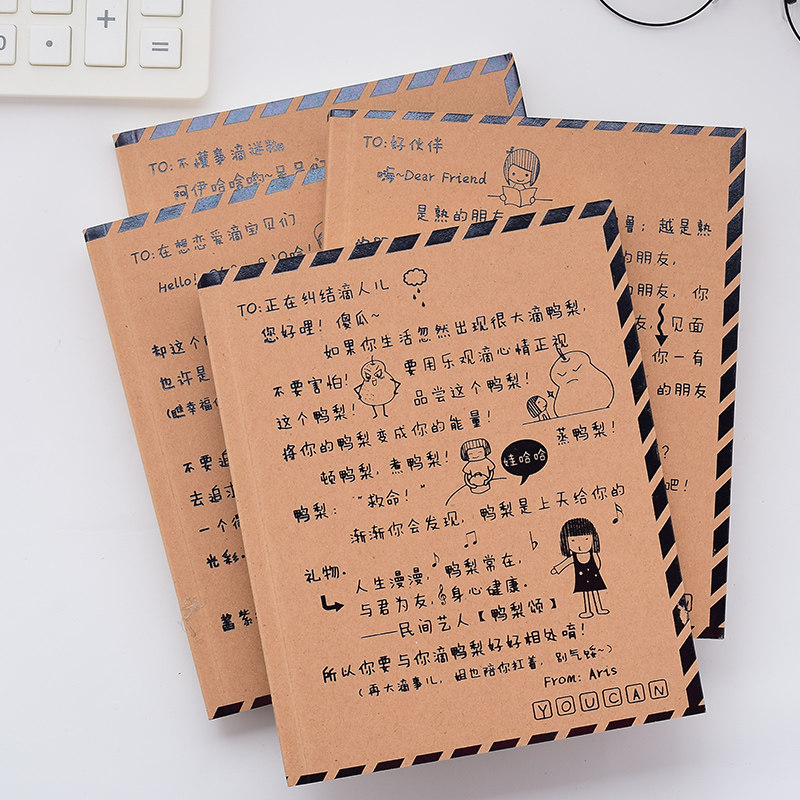 0
.
+
=
TO:不懂事滴迷糊
阿伊哈哈哟~
TO:好伙伴
嗨~Dear Friend
是熟的朋友
越是熟
的朋友,
的朋友, 你
友, 见面
你一有
的朋友
?
吧!
TO:在想恋爱滴宝贝们
Hello!
却这个
也许是
(瞧幸福
不要追
去追求
一个很
光彩.
酱紫
TO:正在纠结滴人儿
您好哩! 傻瓜~
如果你生活忽然出现很大滴鸭梨,
不要害怕! 要用乐观滴心情正视
这个鸭梨! 品尝这个鸭梨!
将你的鸭梨变成你的能量!
蒸鸭梨!
顿鸭梨, 煮鸭梨!
娃哈哈
鸭梨: “救命!”
渐渐你会发现, 鸭梨是上天给你的
礼物.
人生漫漫, 鸭梨常在,
与君为友, 身心健康.
——民间艺人【鸭梨颂】
所以你要与你滴鸭梨好好相处唷!
(再大滴事儿, 姐也陪你扛着, 别气馁~)
From: Aris
YOUCAN